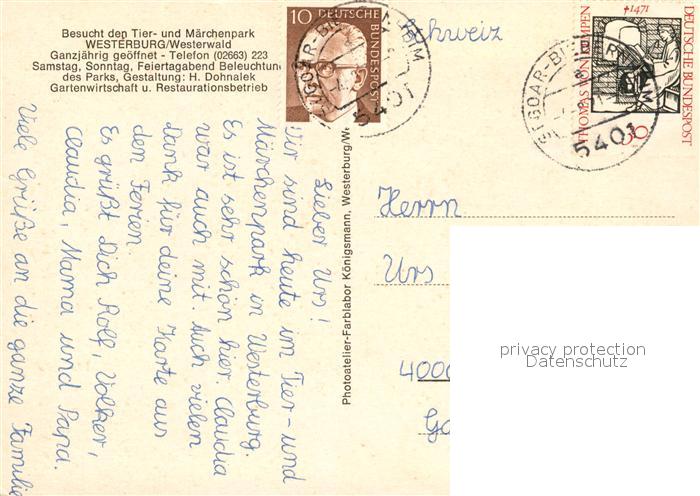 Besucht den Tier- und Märchenpark
WESTERBURG/Westerwald
Ganzjährig geöffnet - Telefon (02663) 223
Samstag, Sonntag, Feiertagabend Beleuchtung
des Parks, Gestaltung: H. Dohnalek
Gartenwirtschaft u. Restaurationsbetrieb
Lieber Urs!
Wir sind heute im Tier- und
Märchenpark in Westerburg.
Es ist sehr schön hier. Claudia
war auch mit. Auch vielen
Dank für deine Karte aus
den Ferien.
Es grüßt Dich Rolf, Volker,
Claudia, Mama und Papa.
Viele Grüße an die ganze Familie
Photoatelier-Farblabor Königsmann, Westerburg/We
10 DEUTSCHE
BUNDESPOST
5401
Schweiz
†1471
THOMAS VON KEMPEN
DEUTSCHE BUNDESPOST
30
ST GOAR-BI
5401
Herrn
Urs
4000
privacy protection
Datenschutz